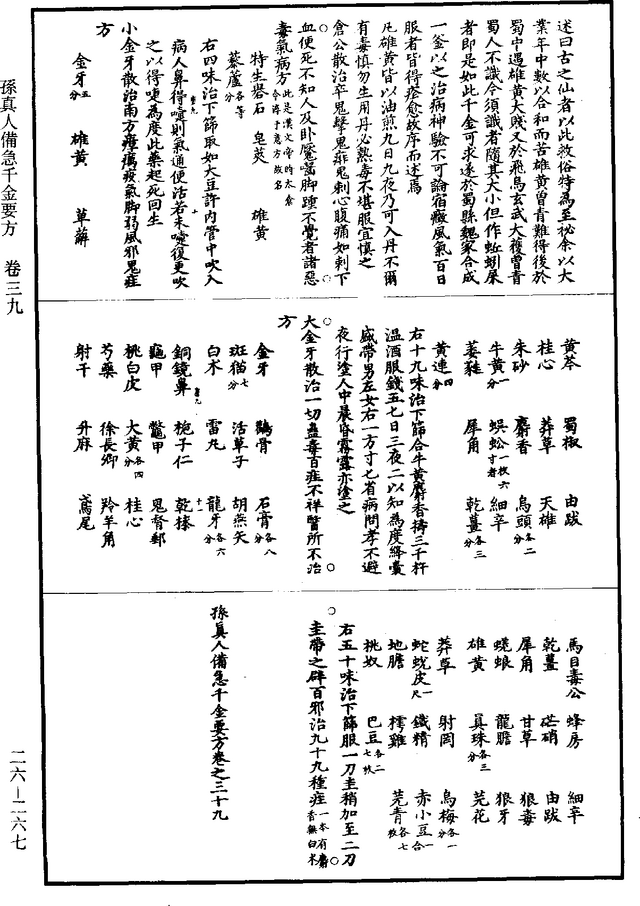 述曰古之仙者以此救俗特為至祕余以大
業年中數以合和而苦雄黃曾青難得後於
蜀中遇雄黃大賤又於飛烏玄武大獲曾青
蜀人不識今須識者隨其大小但作蚯蚓屎
者即是如此千金可求遂於蜀縣魏家合成
一釜以之治病神驗不可論宿癥風氣百日
服者皆得痊愈故序而述焉
凡雄黃皆以油煎九日九夜乃可入丹不爾
有毒慎勿生用丹必熱毒不堪服宜慎之
倉公散治卒鬼擊鬼痱鬼刺心腹痛如刺下
血便死不知人及臥魘齧腳踵不覺者諸惡
毒氣病方 此是漢文帝時太倉令淳于意方故名
特生礜石 皂莢 雄黃
藜蘆 各等分
右四味治下篩取如大豆許內管中吹入
病人鼻得嚏則氣通便活若未嚏復更吹
之以得嚏為度此藥起死回生
小金牙散治南方瘴癘疫氣腳弱風邪鬼疰
方
金牙 五分 雄黃 萆薢
黃芩 蜀椒 由跋
桂心 莽草 天雄
朱砂 麝香 烏頭 各二分
牛黃 一分 蜈蚣 一枚六寸者 細辛
萎蕤 犀角 乾薑 各三分
黃連 四分
右十九味治下篩合牛黃麝香擣三千杵
溫酒服錢五七日三夜二以知為度絳囊
盛帶男左女右一方寸匕省病問孝不避
夜行塗人中晨昏霧露亦塗之
大金牙散治一切蠱毒百疰不祥醫所不治
方
金牙 鸛骨 石膏 各八分
斑貓 七分 活草子 胡燕矢
白朮 雷丸 龍牙 各六分
銅鏡鼻 梔子仁 乾漆
龜甲 鱉甲 鬼督郵
桃白皮 大黃 各四分 桂心
芍藥 徐長卿 羚羊角
射干 升麻 鳶尾
馬目毒公 蜂房 細辛
乾薑 芒硝 由跋
犀角 甘草 狼毒
蜣蜋 龍膽 狼牙
雄黃 真珠 各三分 芫花
莽草 射罔 烏梅 各一分
蛇蛻皮 一尺 鐵精 赤小豆 一合
地膽 樗雞 芫青 各七枚
桃奴 巴豆 各二七枚
右五十味治下篩服一刀圭稍加至二刀
圭帶之辟百邪治九十九種疰 一本有麝香無白朮
孫真人備急千金要方卷之三十九
孫真人備急千金要方 卷三九
二六—二六七